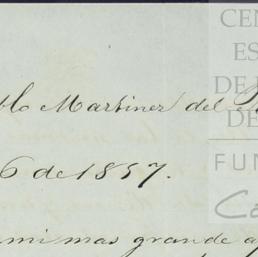 Martinez del
6 de 1857.
mi mas grande a
CEN
ES
DE
DE
FUN
Ca